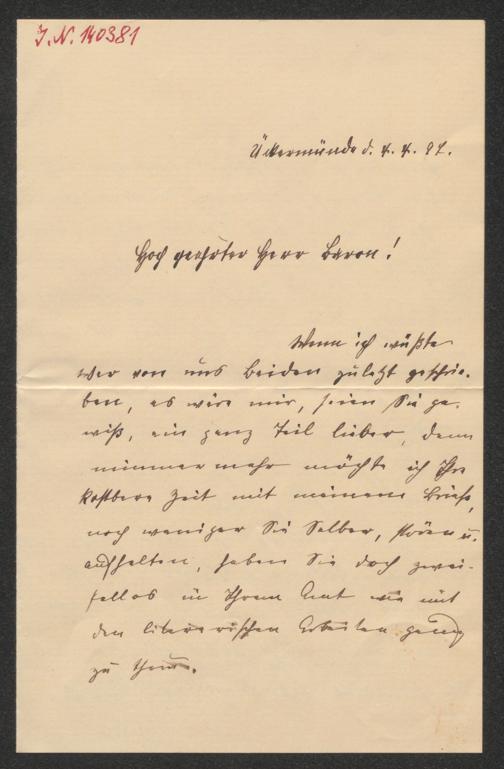 J. N. 140381
Ückermünde d. 4. 4. 92.
Hoch geehrter Herr Baron!
Wenn ich wüßte
wer von uns Beiden zuletzt geschrie-
ben, es wäre mir, seien Sie ge-
wiß, ein ganz Teil lieber, denn
nimmermehr möchte ich Ihre
kostbare Zeit mit meinem Briefe,
noch weniger Sie Selber, stören u.
aufhalten, haben Sie doch zwei-
fellos in Ihrem Amt wie mit
den literarischen Arbeiten genug
zu thun.